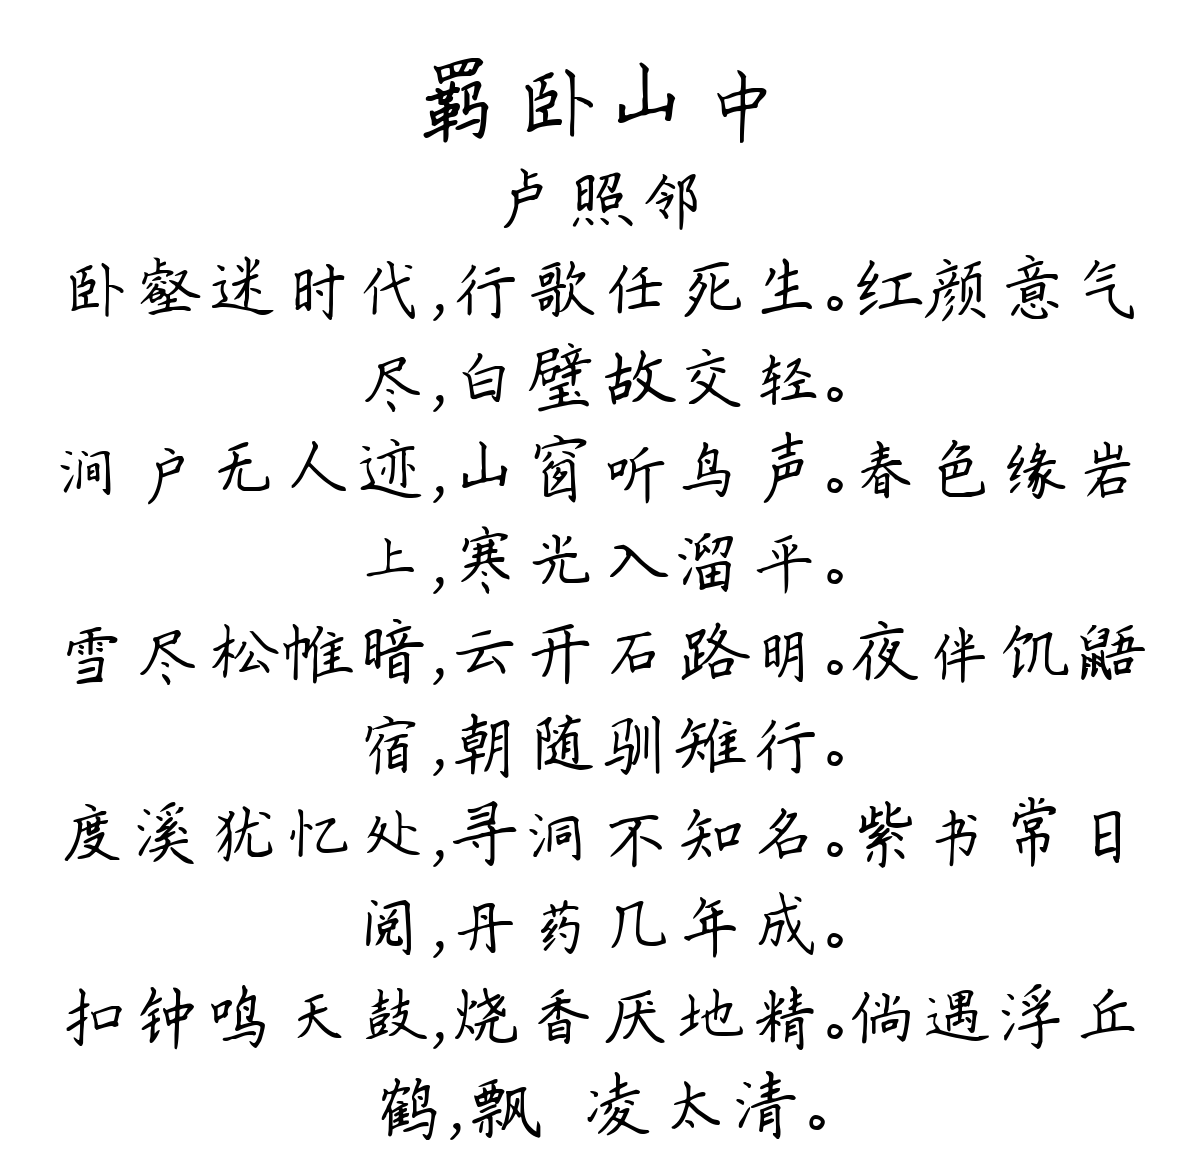 羁卧山中
卢照邻
卧壑迷时代,行歌任死生。红颜意气
尽,白璧故交轻。
涧户无人迹,山窗听鸟声。春色缘岩
上,寒光入溜平。
雪尽松帷暗,云开石路明。夜伴饥鼯
宿,朝随驯雉行。
度溪犹忆处,寻洞不知名。紫书常日
阅,丹药几年成。
扣钟鸣天鼓,烧香厌地精。倘遇浮丘
鹤,飘 凌太清。